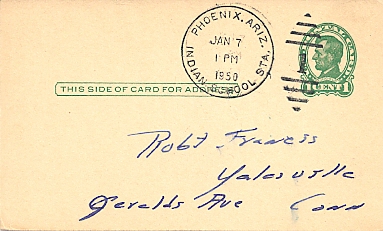 PHOENIX, ARIZ.
JAN 7
1 PM
1950
INDIAN SCHOOL STA.
THIS SIDE OF CARD FOR ADDRESS
1 CENT 1
Robt Francis
Yalesville
Geralds Ave Conn